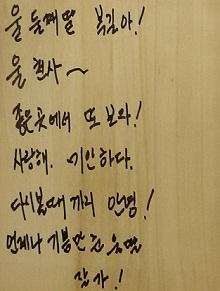 울 둘째딸 복길아!
울 천사~
좋은곳에서 또 보자!
사랑해. 미안하다.
다시볼때 까지 안녕!
언제나 기쁨만 준 울딸
잘가!